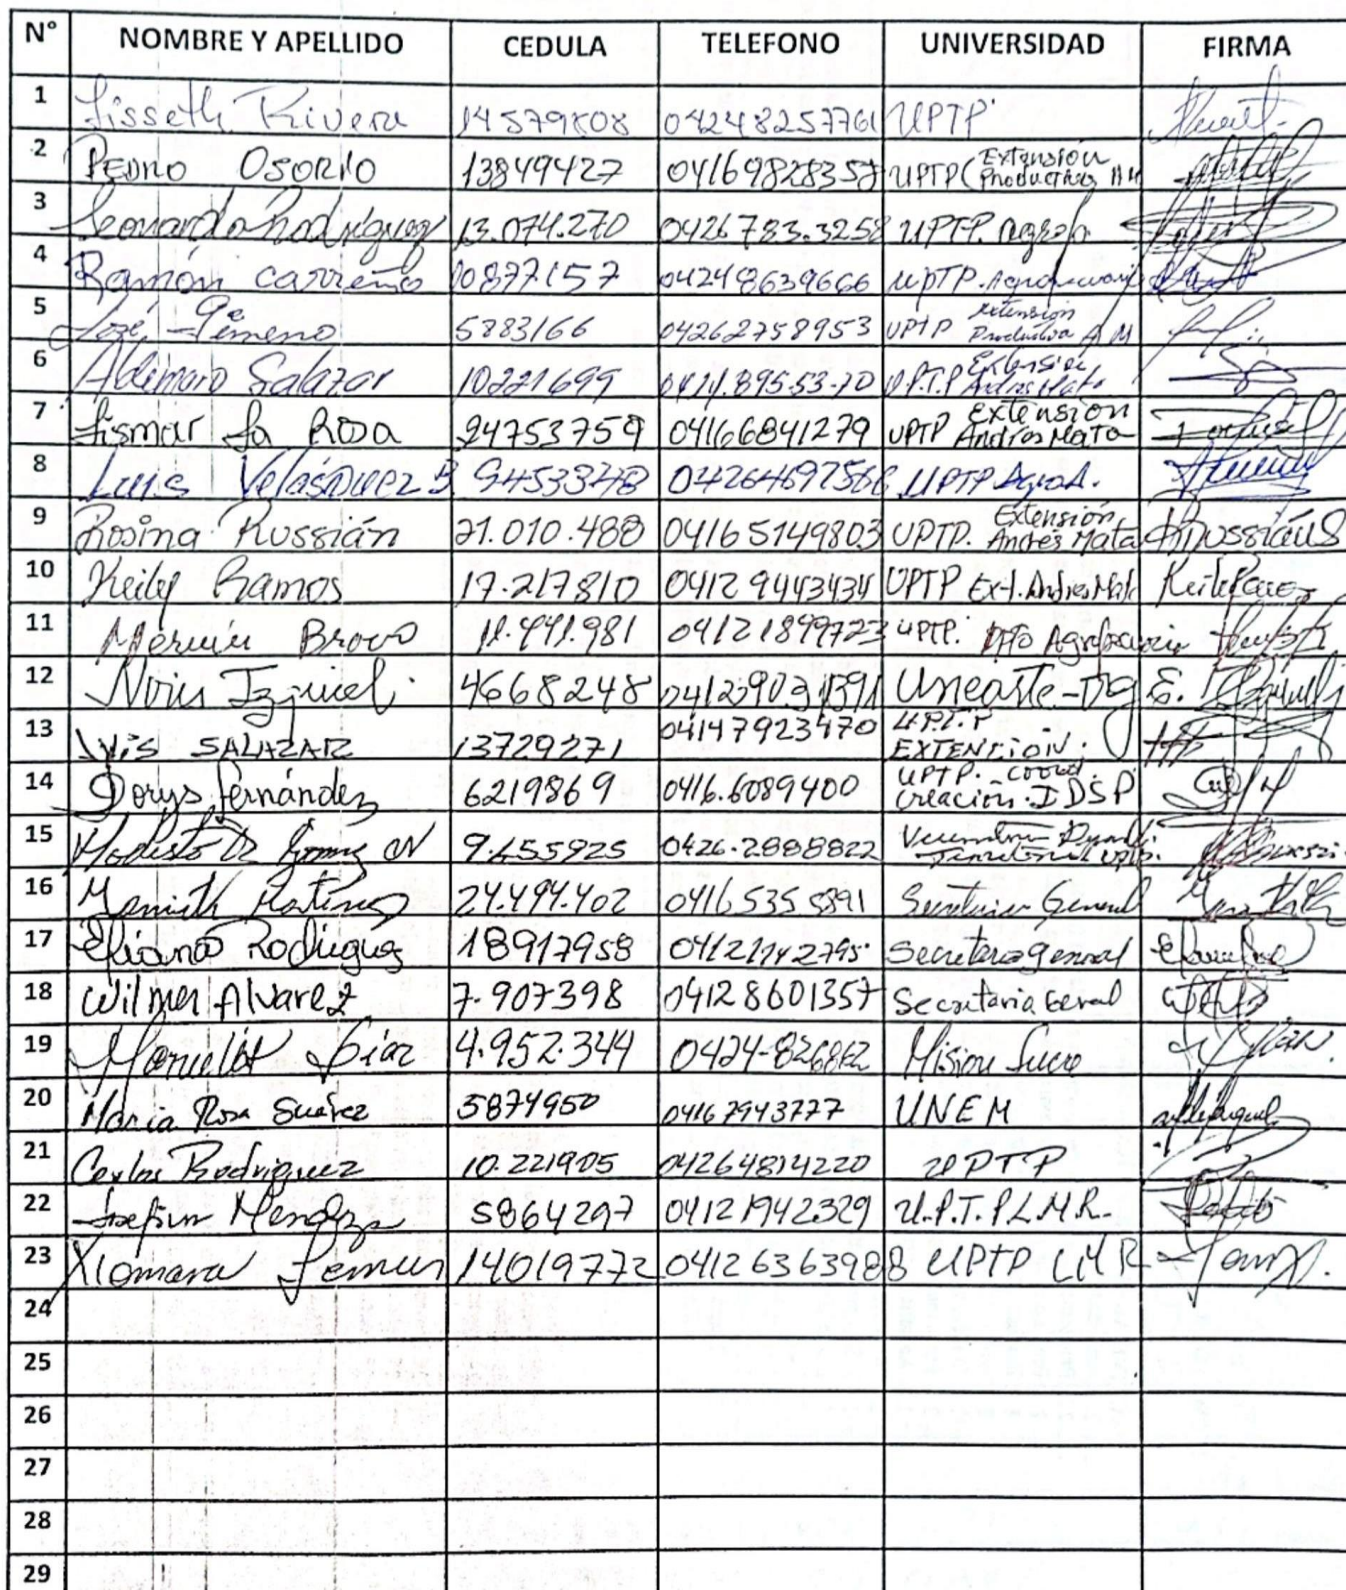 N° NOMBRE Y APELLIDO CEDULA TELEFONO UNIVERSIDAD FIRMA
1 Lisseth Rivera 14579808 04248257761 UPTP
2 PEDRO OSORIO 13849427 04169828358 UPTP (Extensión Productiva AM
3 Leonardo Rodriguez 13.074.270 0426783.3258 UPTP.
4 Ramón Carreño 10877157 04248639666 UPTP.
5 José Gemeno 5883166 04262758953 UPTP extension Productiva A M
6 Aldemaro Salazar 10221699 0414.895-53-70 U.P.T.P Extensión Andres Mata
7 Lismar La Rosa 24753759 04166841279 UPTP Extensión Andres Mata
8 Luis Velásquez B 9453348 04264697566 UPTP AgroA.
9 Rosina Russián 21.010.488 04165149803 UPTP. Extensión Andrés Mata
10 Keily Ramos 17.217810 04129443434 UPTP Ext. Andres Mata
11 Mervin Bravo 11.441.981 04121899723 UPTP. Dpto
12 4668248 Unearte-
13 Luis SALAZAR 13729271 04147923470 EXTENCION.
14 Dorys Fernández 6219869 0416.6089400 UPTP. Coord. Creación. IDSP
15 Modesto 9.455925 0426.2888822
16 24.494.402 0416535 5891 General
17 Eliana Rodriguez 18917958 04121942795 Secretaria General
18 Wilmer Alvarez 7.907398 04128601357 Secretaria Geral
19 Díaz 4.952.344 0424-826862 Mision Sucre
20 Maria Rosa Suárez 5874950 04167943777 UNEM
21 Carlos Rodriguez 10.221905 04264814220 UPTP
22 Mendoza 5864297 04121942329 U.P.T.P L.M.R.
23 Xiomara 14019772 04126363988 UPTP LMR
24
25
26
27
28
29